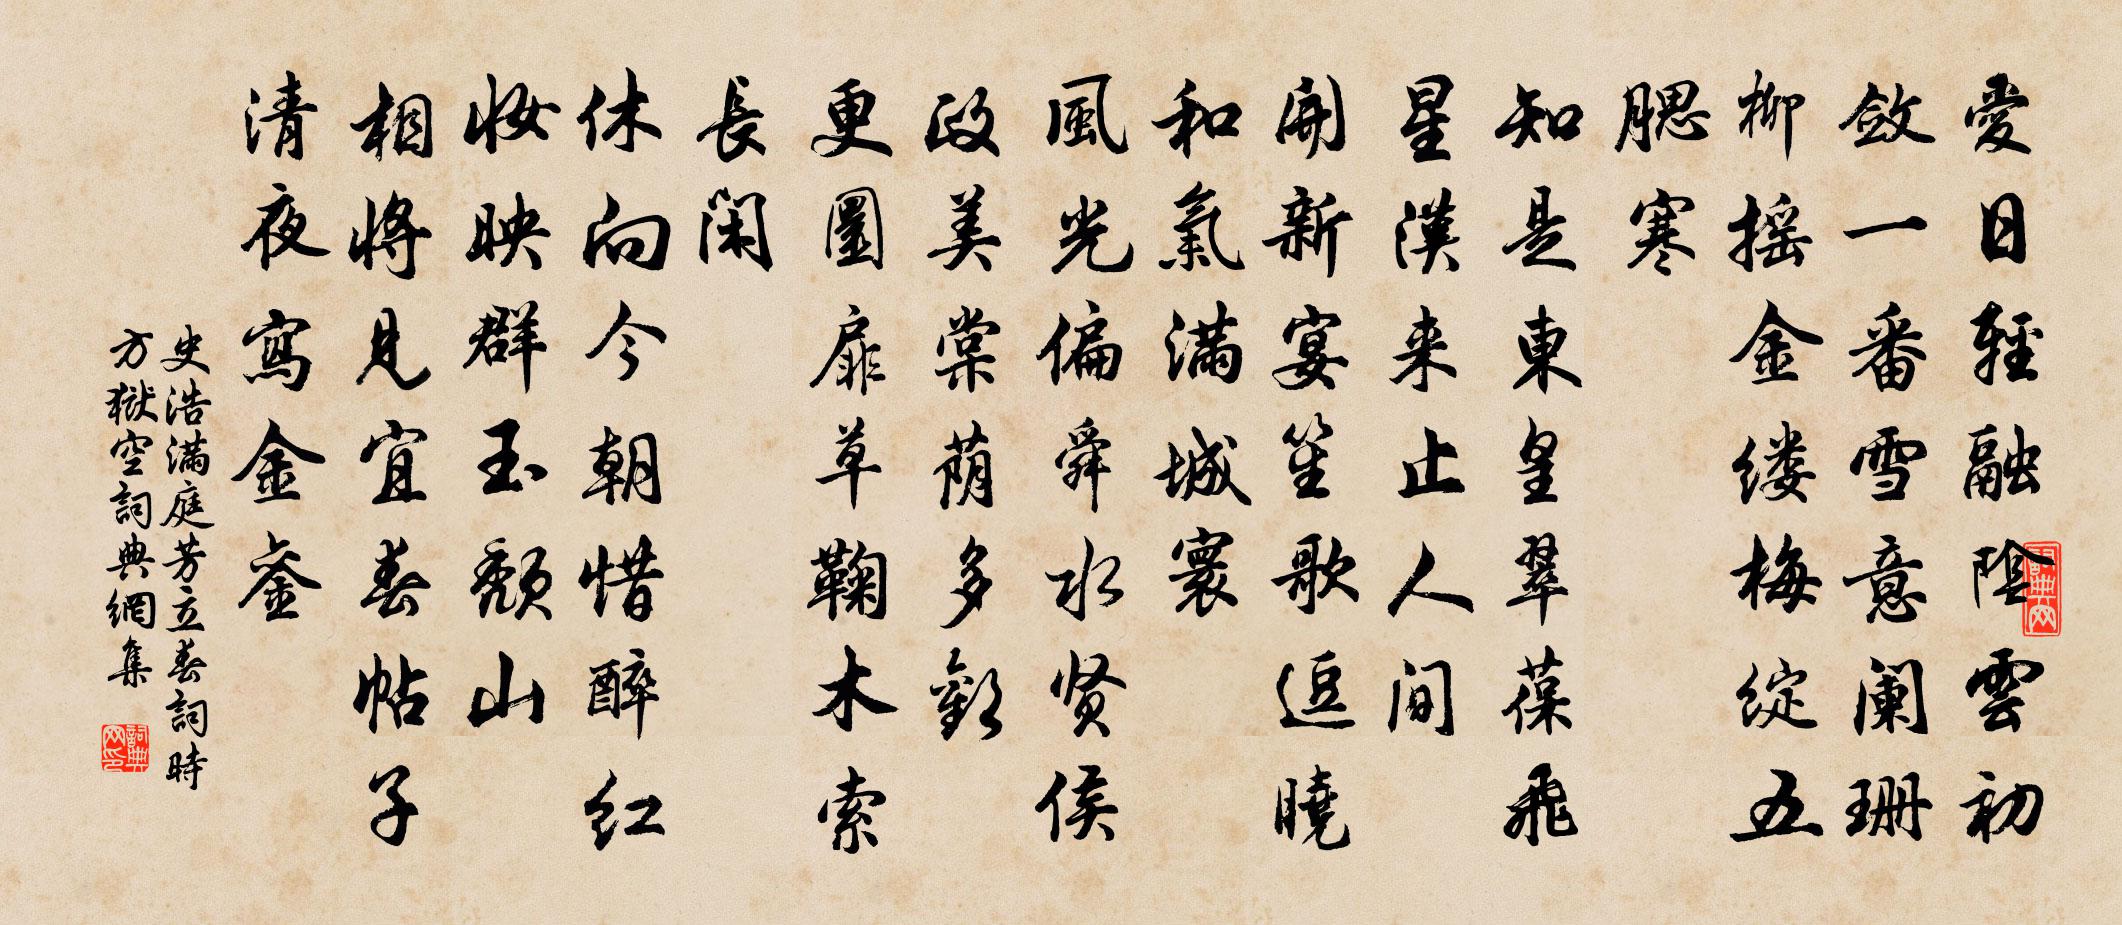 愛日輕融陰雲初
斂一番雪意阑珊
柳摇金缕梅綻五
腮寒
知是東皇翠葆飛
星漢来止人间
開新宴笙歌逗曉
和氣滿城寰
風光偏舜水贤侯
政美棠荫多歡
更圜扉草鞠木索
長闲
休向今朝惜醉红
妝映群玉颓山
相將見宜春帖子
清夜寫金銮
史浩滿庭芳立春詞時
方獄空詞典網集
詞典网
詞典网印